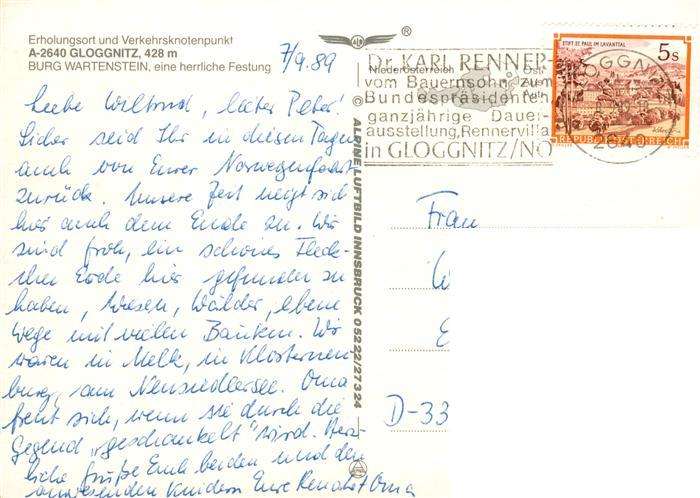 Erholungsort und Verkehrsknotenpunkt
A-2640 GLOGGNITZ, 428 m
BURG WARTENSTEIN, eine herrliche Festung
7/9.89
Liebe Waltraud, lieber Peter!
Sicher seid Ihr in diesen Tagen
auch von Eurer Norwegenfahrt
zurück. Unsere Zeit neigt sich
hier auch dem Ende zu. Wir
sind froh, ein schönes Fleck-
chen Erde hier gefunden zu
haben, Wiesen, Wälder, ebene
Wege mit vielen Bänken. Wir
waren in Melk, in Klosterneu-
burg, am Neusiedlersee. Oma
freut sich, wenn sie durch die
Gegend „geschaukelt" wird. Herz-
liche Grüße Euch beiden und den
anwesenden Kindern Eure Renate + Oma
®
© ALPINE LUFTBILD INNSBRUCK 05222/27324
Niederösterreich
Dr. KARL RENNER-
vom Bauernsohn zum
Bundespräsidenten
ganzjährige Dauer-
ausstellung, Rennervilla
in GLOGGNITZ/NÖ
STIFT ST. PAUL IM LAVANTTAL
5s
REPUBLIK ÖSTERREICH
GLOGGNITZ
2640
Frau
W
E
D-33